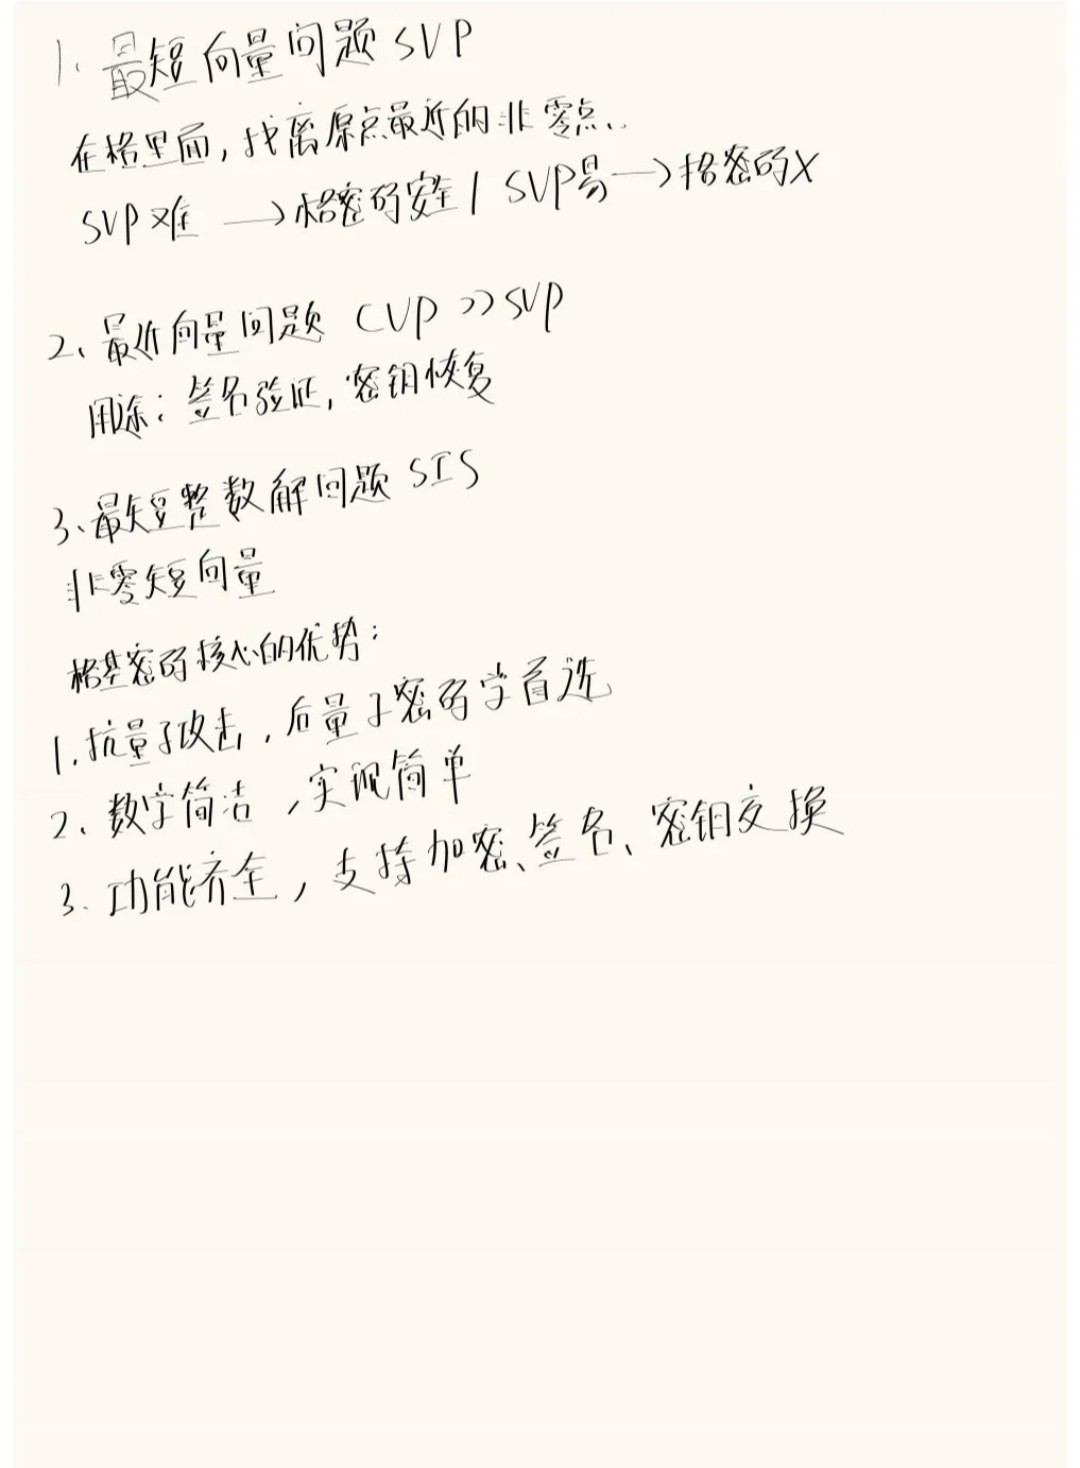 1. 最短向量问题 SVP
在格里面,找离原点最近的非零点..
SVP难 → 格密码安全 / SVP易 → 格密码X
2、最近向量问题 CVP >> SVP
用途:签名验证,密钥恢复
3、最短整数解问题 SIS
非零短向量
格基密码核心的优势:
1.抗量子攻击,后量子密码学首选
2、数学简洁,实现简单
3.功能齐全,支持加密、签名、密钥交换